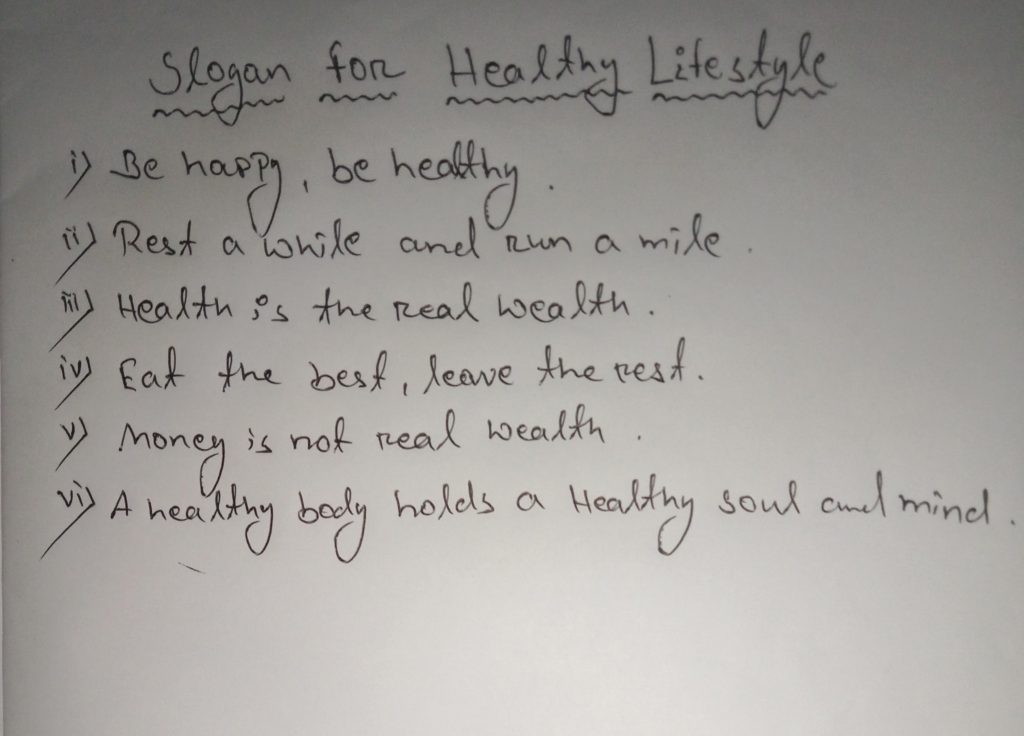 Slogan for Healthy Lifestyle
i) Be happy, be healthy.
ii) Rest a while and run a mile.
iii) Health is the real wealth.
iv) Eat the best, leave the rest.
v) Money is not real wealth.
vi) A healthy body holds a Healthy soul and mind.